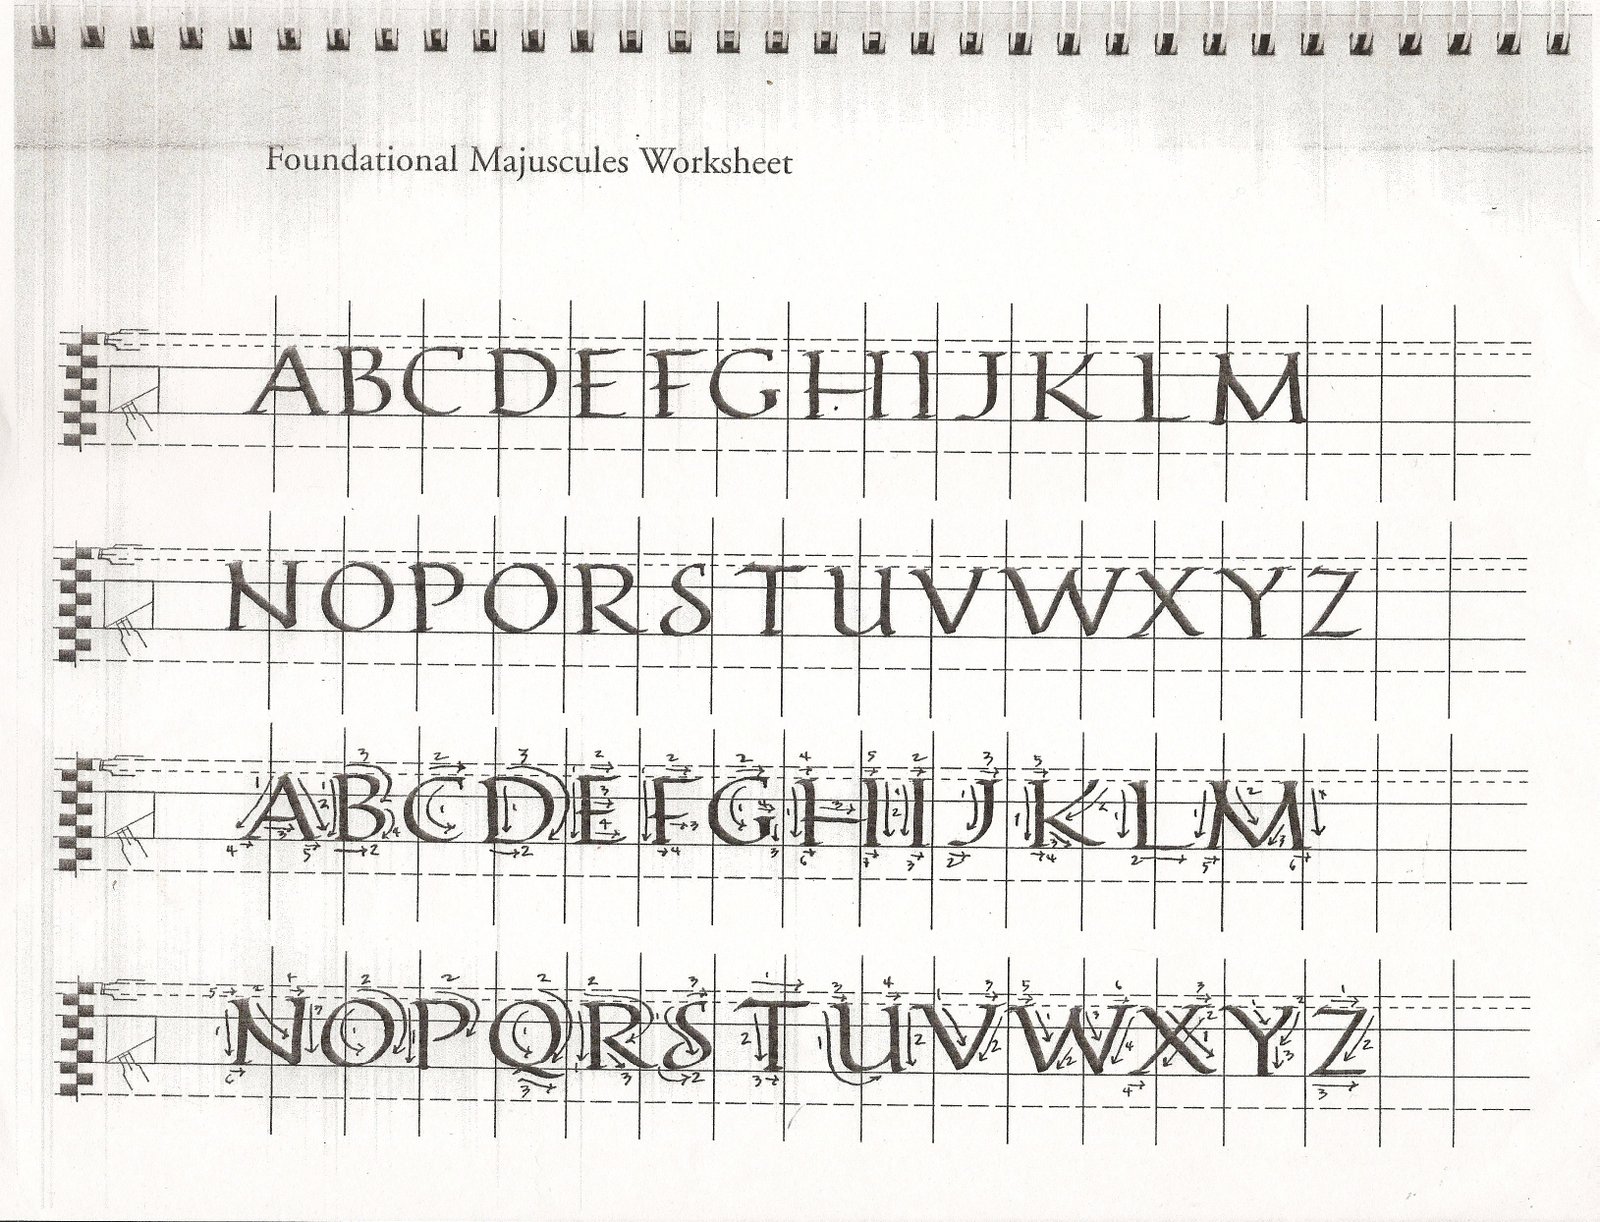 Foundational Majuscules Worksheet
ABCDEFGHIJKLM
NOPORSTUVWXYZ
ABCDEFGHIJKLM
NOPQRSTUVWXYZ